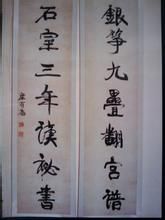 銀箏九疊翻宮譜
石室三年讀祕書
康有為